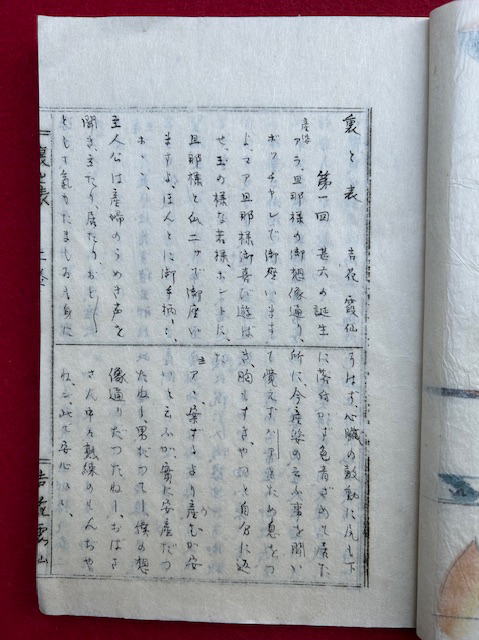 裏と表　吉花霞仙
第一回　甚六の誕生
産婆
アラ、旦那様の御想像通り、
ボッチャンで御座います
よ、マア旦那様御喜び遊ば
せ、玉の様な若様、ホントに、
旦那様と瓜二ツで御座い
ますよ、ほんとに御手柄、
ホヽ、
主人公は産婦のうめき声を
聞き、立たり居たり、おも
とても気が
うはず、心臓の鼓動に尻も下
に落付かず色青ざめて居た
所に、今産婆の云ふ事を聞い
て覚えず ため息をつ
き、胸もすき、やつと自分に返
た
主
アヽ、案ずるより産むが安
いと云ふが、実に安産だつ
たねー、男だつてー、僕の想
像通りだつたねー、おばさ
ん中々熟練の
ねー、此で安心
裏と表
上巻
吉花霞仙